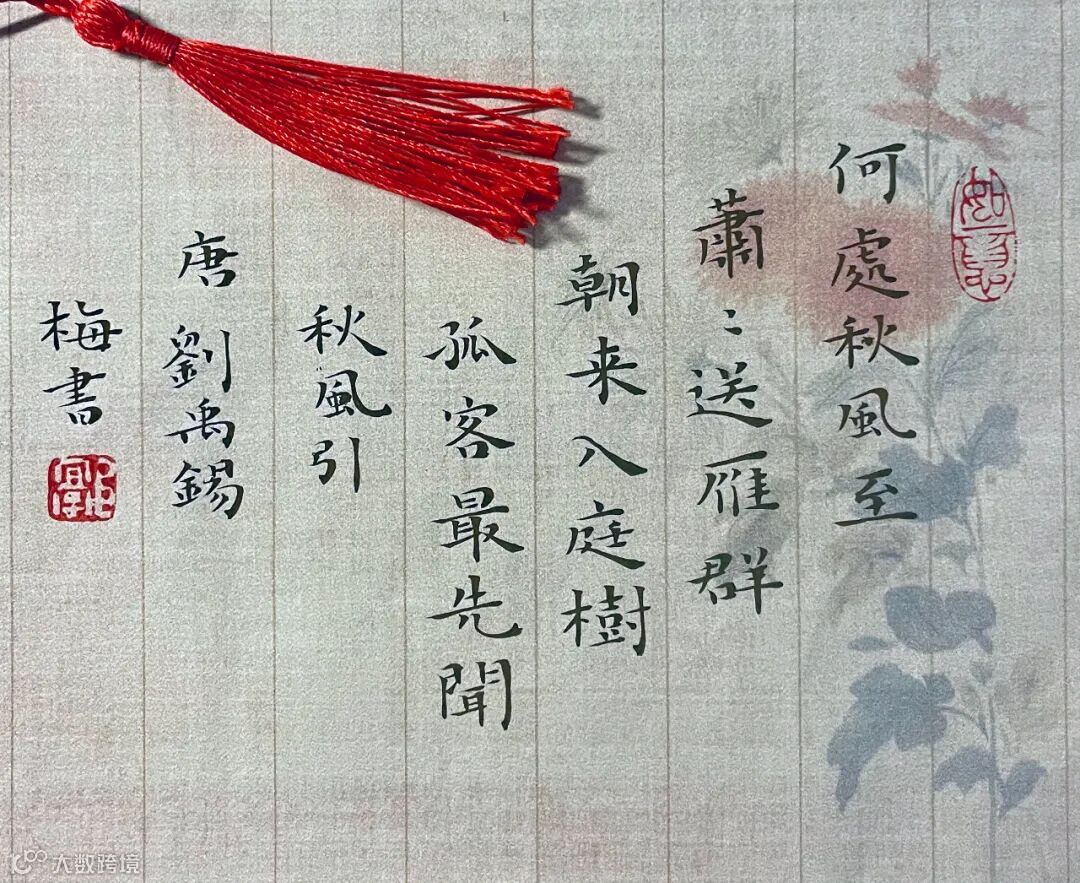 何處秋風至
蕭〻送雁群
朝来入庭樹
孤客最先聞
秋風引
唐劉禹錫
梅書
如意
大数跨境